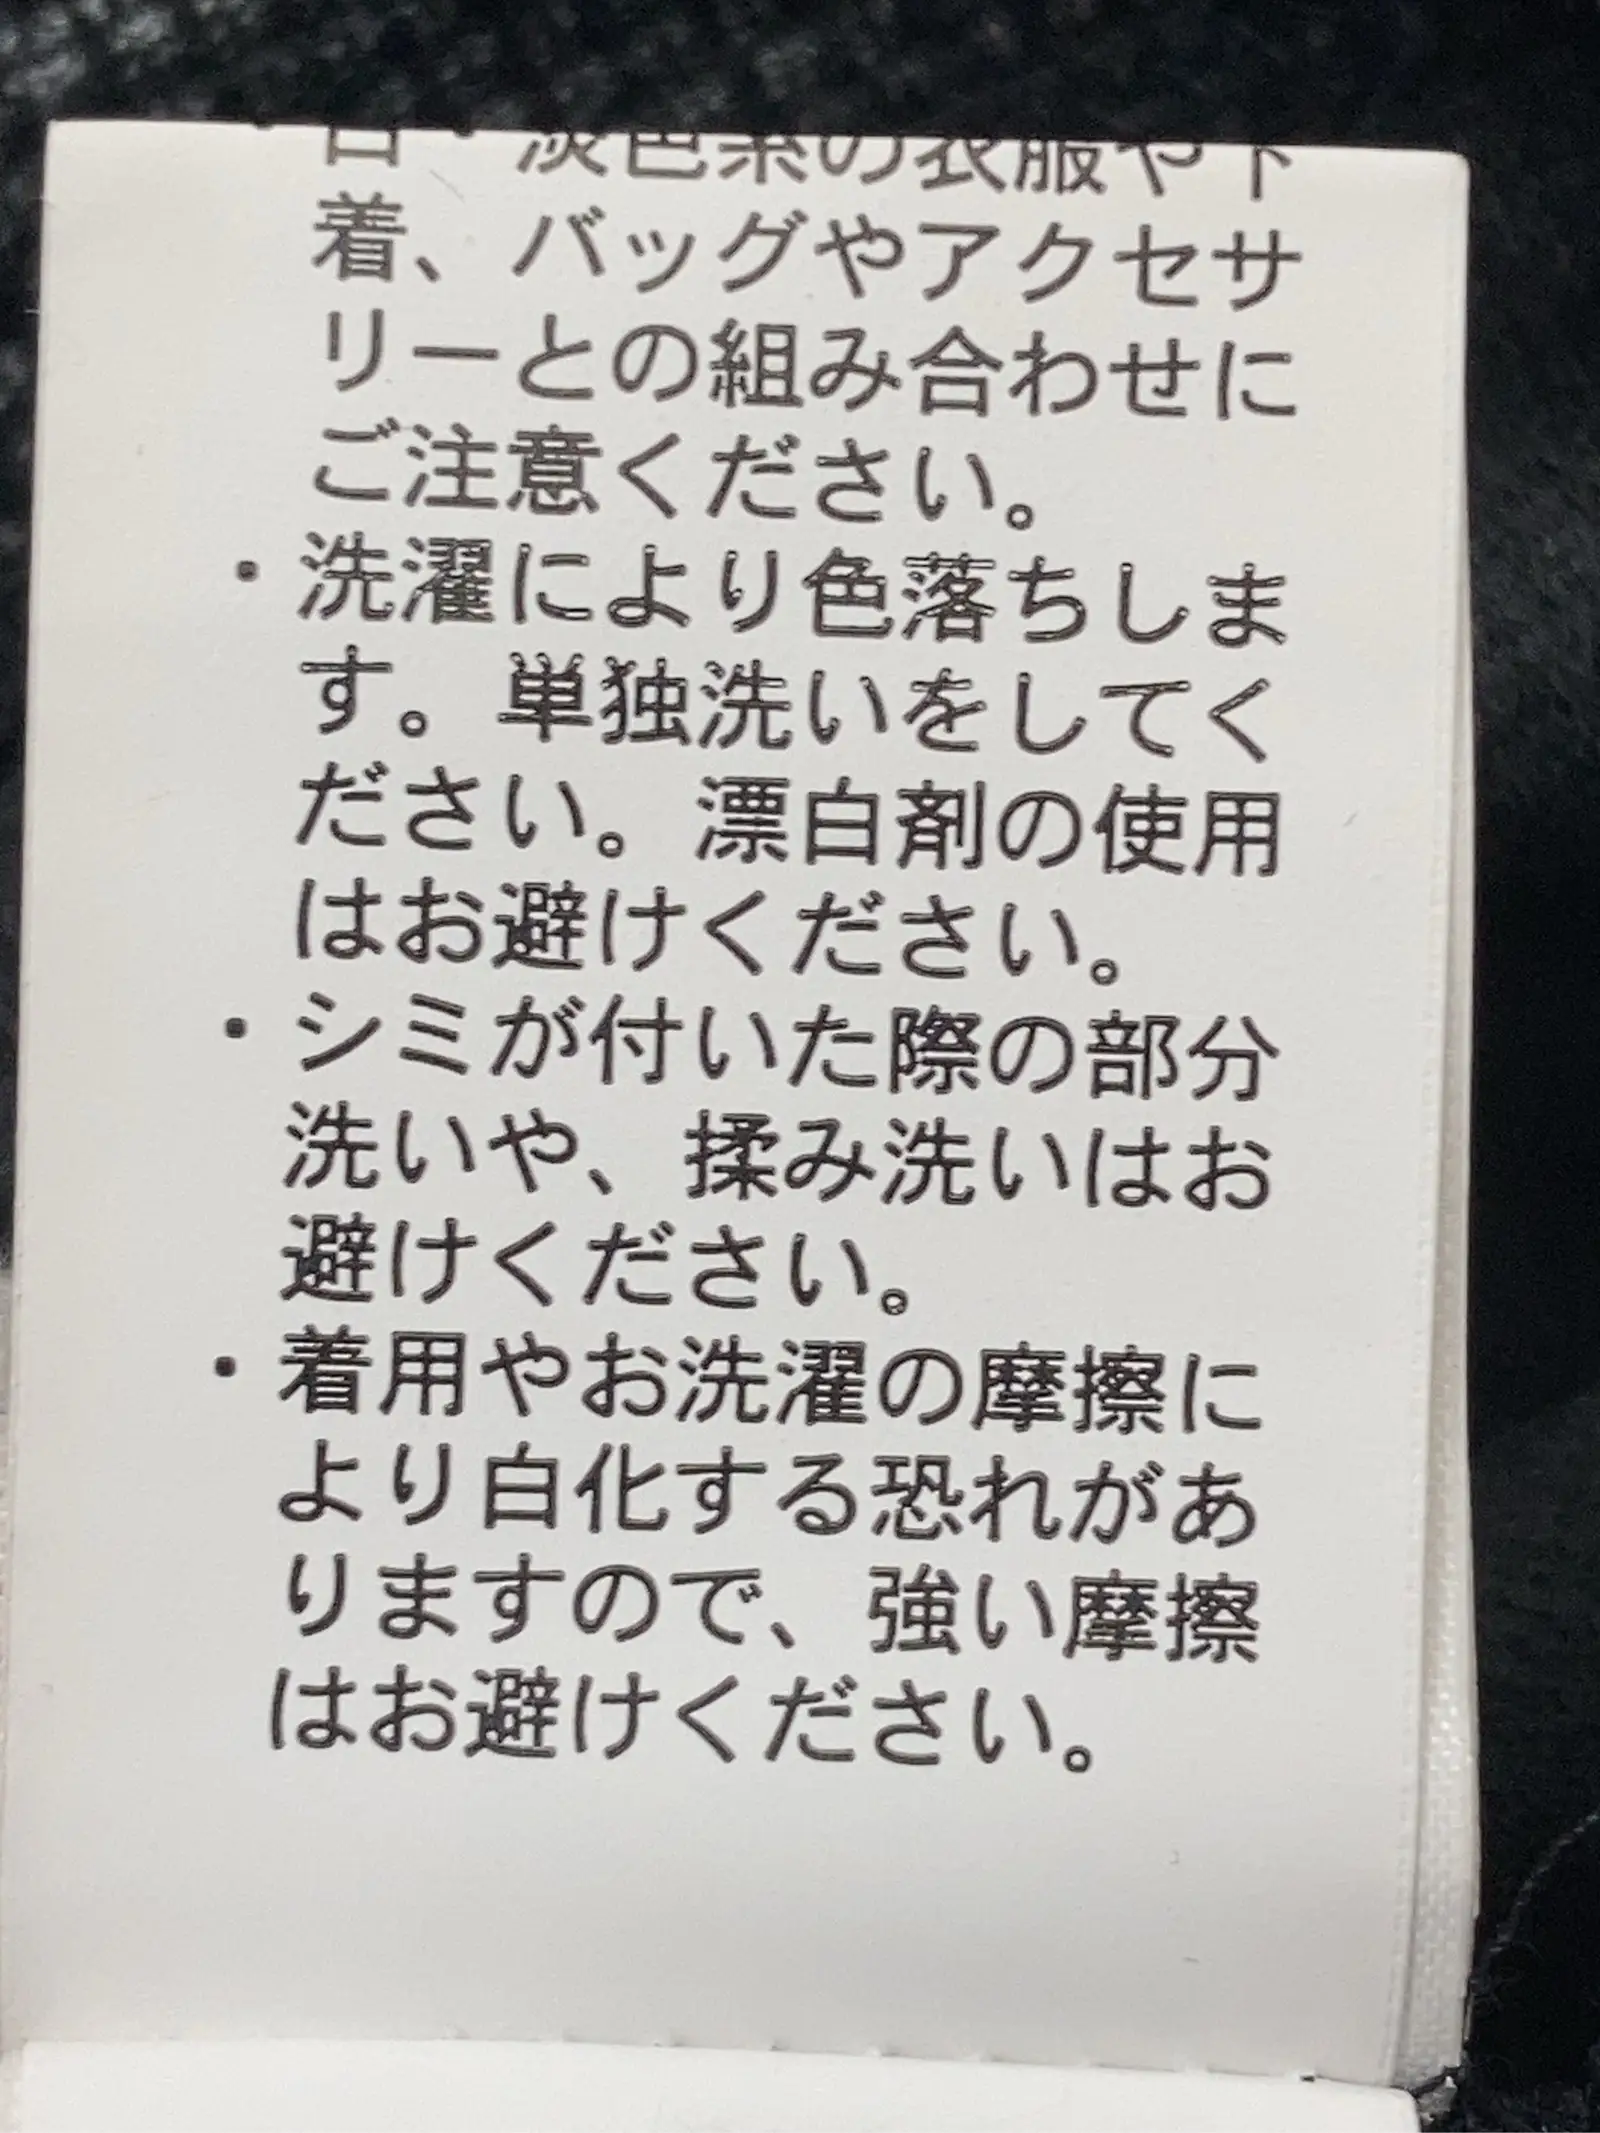 白・淡色系の衣服や下
着、バッグやアクセサ
リーとの組み合わせに
ご注意ください。
・洗濯により色落ちしま
す。単独洗いをしてく
ださい。漂白剤の使用
はお避けください。
・シミが付いた際の部分
洗いや、揉み洗いはお
避けください。
・着用やお洗濯の摩擦に
より白化する恐れがあ
りますので、強い摩擦
はお避けください。